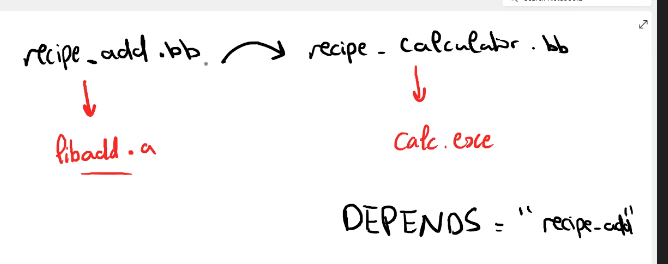 recipe_add.bb recipe_calculator.bb
libadd.a calc.exe
DEPENDS = "recipe-add"